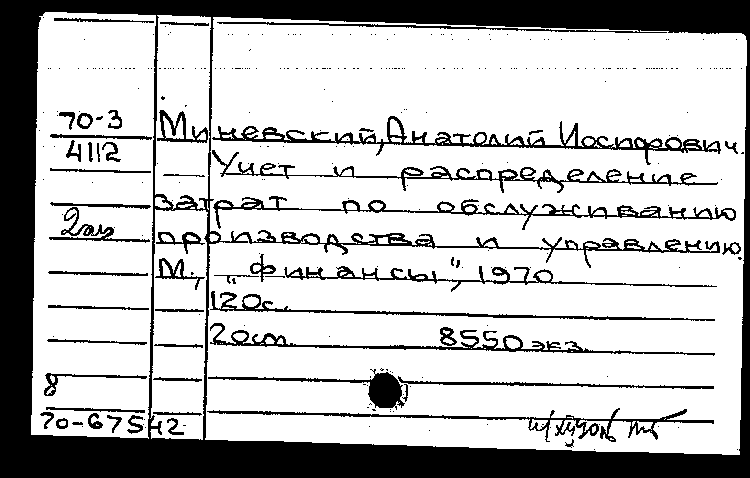 70-3 Миневский, Анатолий Иосифович.
4112 Учет и распределение
затрат по обслуживанию
2 экз производства и управлению.
М., „Финансы", 1970.
120с.
20см. 8550 экз.
8
70-67542